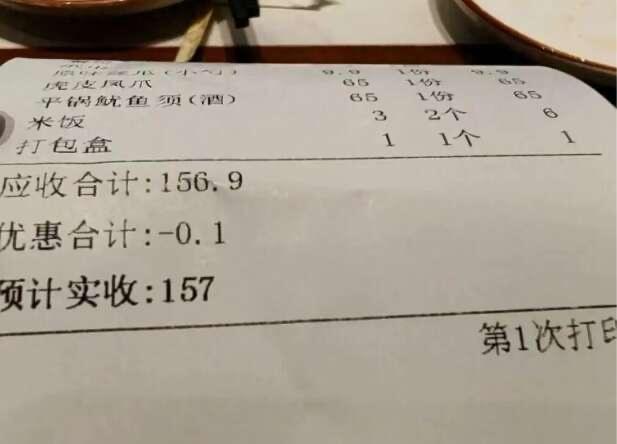 原味黄瓜(小勺) 9.9 1份 9.9
虎皮凤爪 65 1份 65
平锅鱿鱼须(酒) 65 1份 65
米饭 3 2个 6
打包盒 1 1个 1
应收合计:156.9
优惠合计:-0.1
预计实收:157
第1次打印